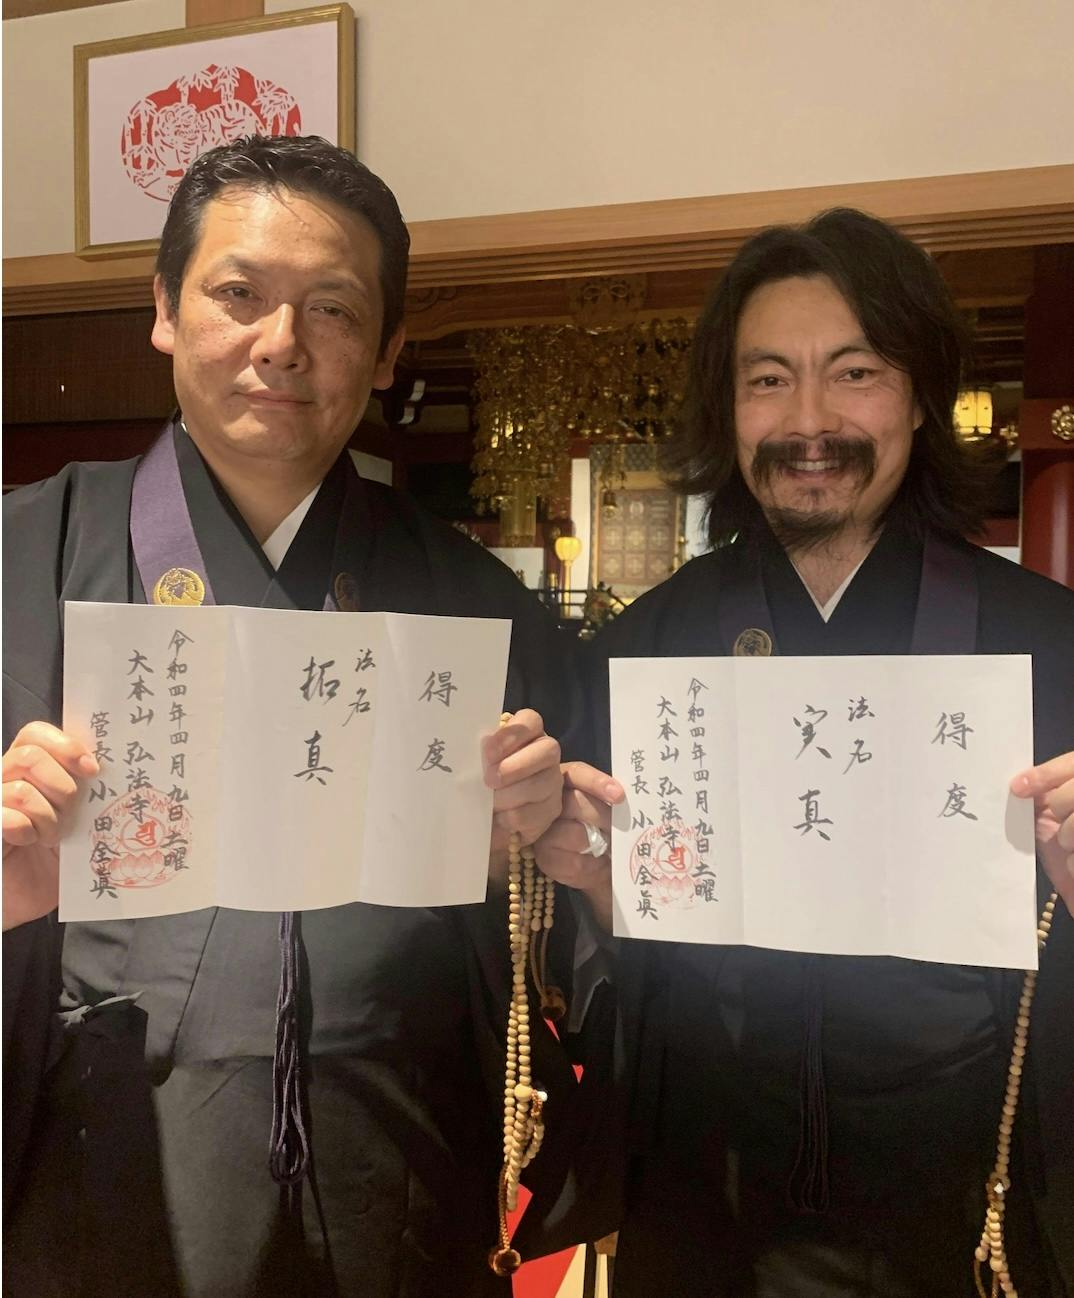 得度
法名
拓真
令和四年四月九日土曜
大本山 弘法寺
管長 小田全眞
得度
法名
実真
令和四年四月九日土曜
大本山 弘法寺
管長 小田全眞